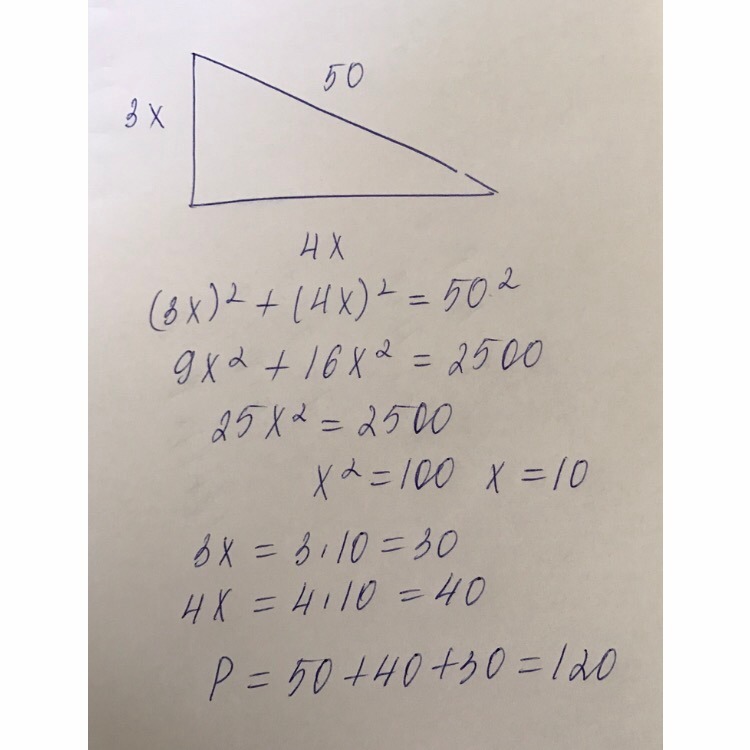 50
3x
4x
(3x)² + (4x)² = 50²
9x² + 16x² = 2500
25x² = 2500
x² = 100 x = 10
3x = 3·10 = 30
4x = 4·10 = 40
P = 50 + 40 + 30 = 120